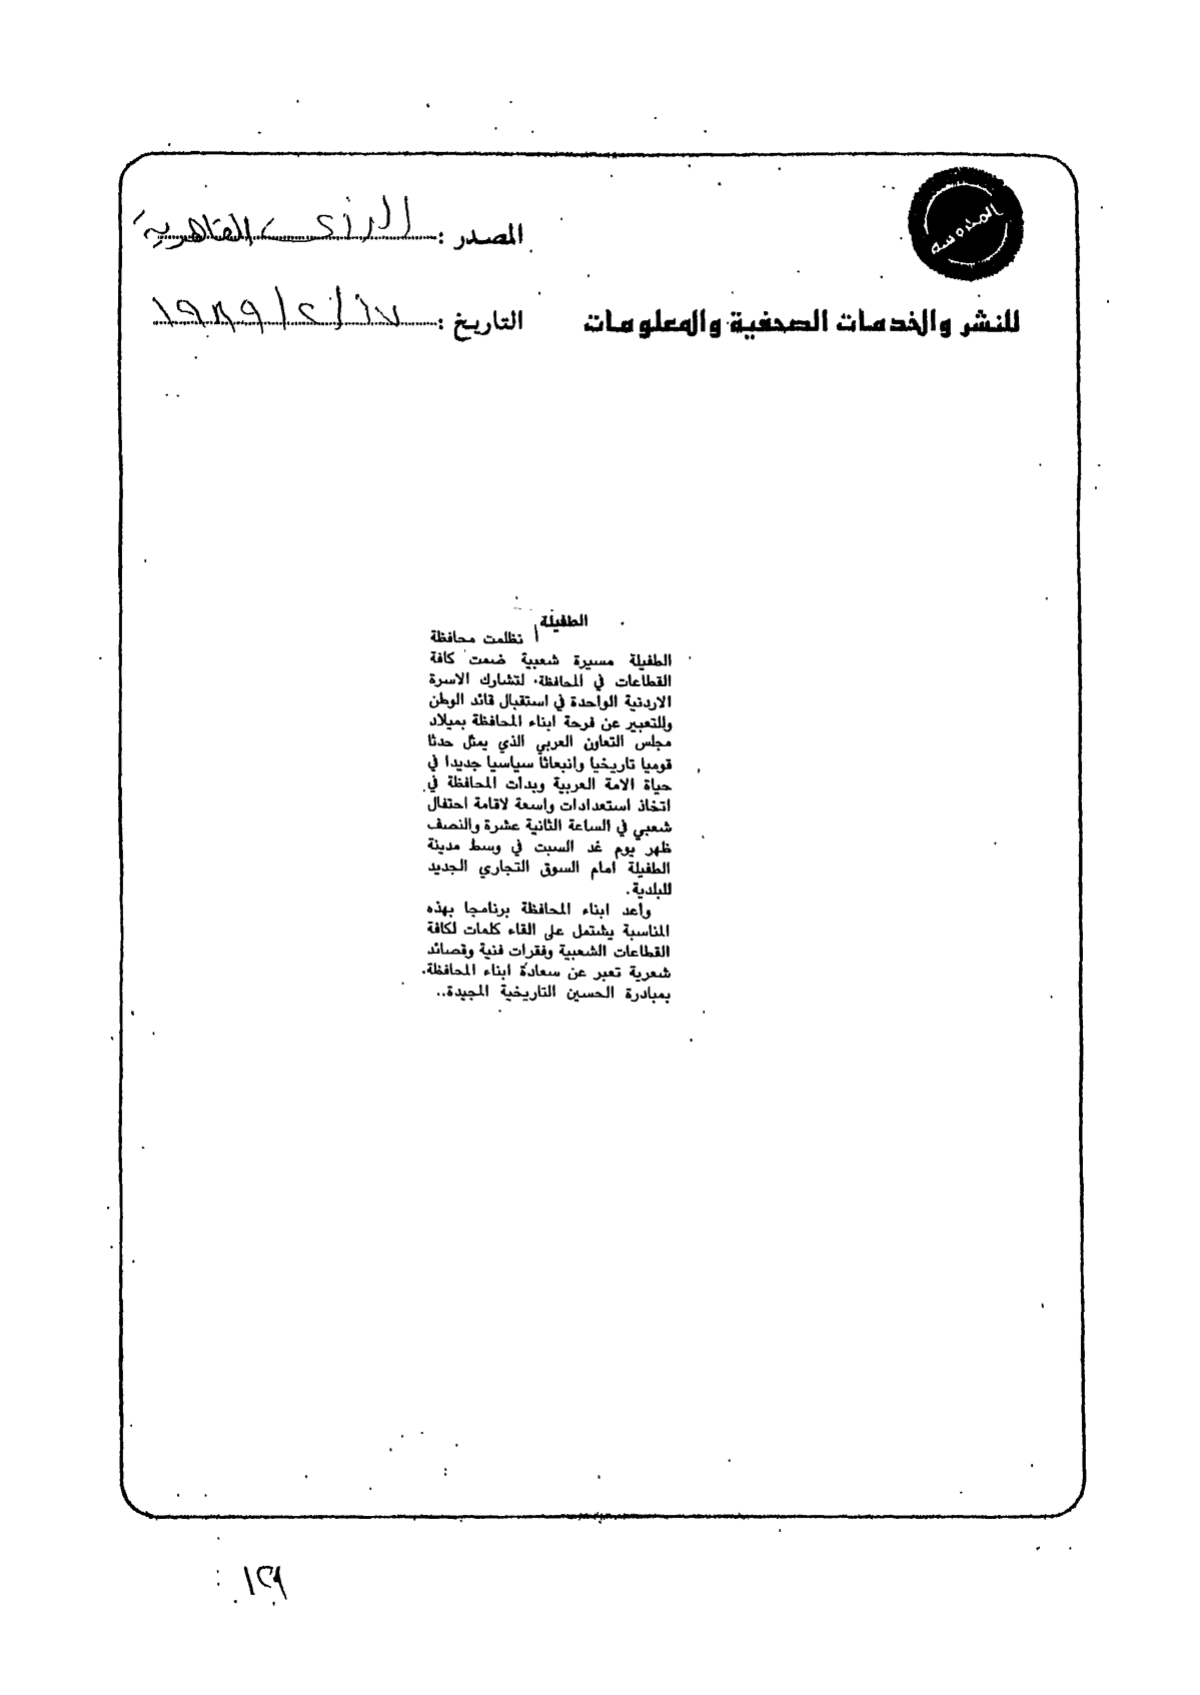 المصدر : الرأي القاهرية
للنشر والخدمات الصحفية والمعلومات التاريخ : ١٧/٢/١٩٨٩
الطفيلة
نظمت محافظة
الطفيلة مسيرة شعبية ضمت كافة
القطاعات في المحافظة، لتشارك الاسرة
الاردنية الواحدة في استقبال قائد الوطن
وللتعبير عن فرحة ابناء المحافظة بميلاد
مجلس التعاون العربي الذي يمثل حدثا
قوميا تاريخيا وانبعاثا سياسيا جديدا في
حياة الامة العربية وبدأت المحافظة في
اتخاذ استعدادات واسعة لاقامة احتفال
شعبي في الساعة الثانية عشرة والنصف
ظهر يوم غد السبت في وسط مدينة
الطفيلة امام السوق التجاري الجديد
للبلدية.
واعد ابناء المحافظة برنامجا بهذه
المناسبة يشتمل على القاء كلمات لكافة
القطاعات الشعبية وفقرات فنية وقصائد
شعرية تعبر عن سعادة ابناء المحافظة.
بمبادرة الحسين التاريخية المجيدة..